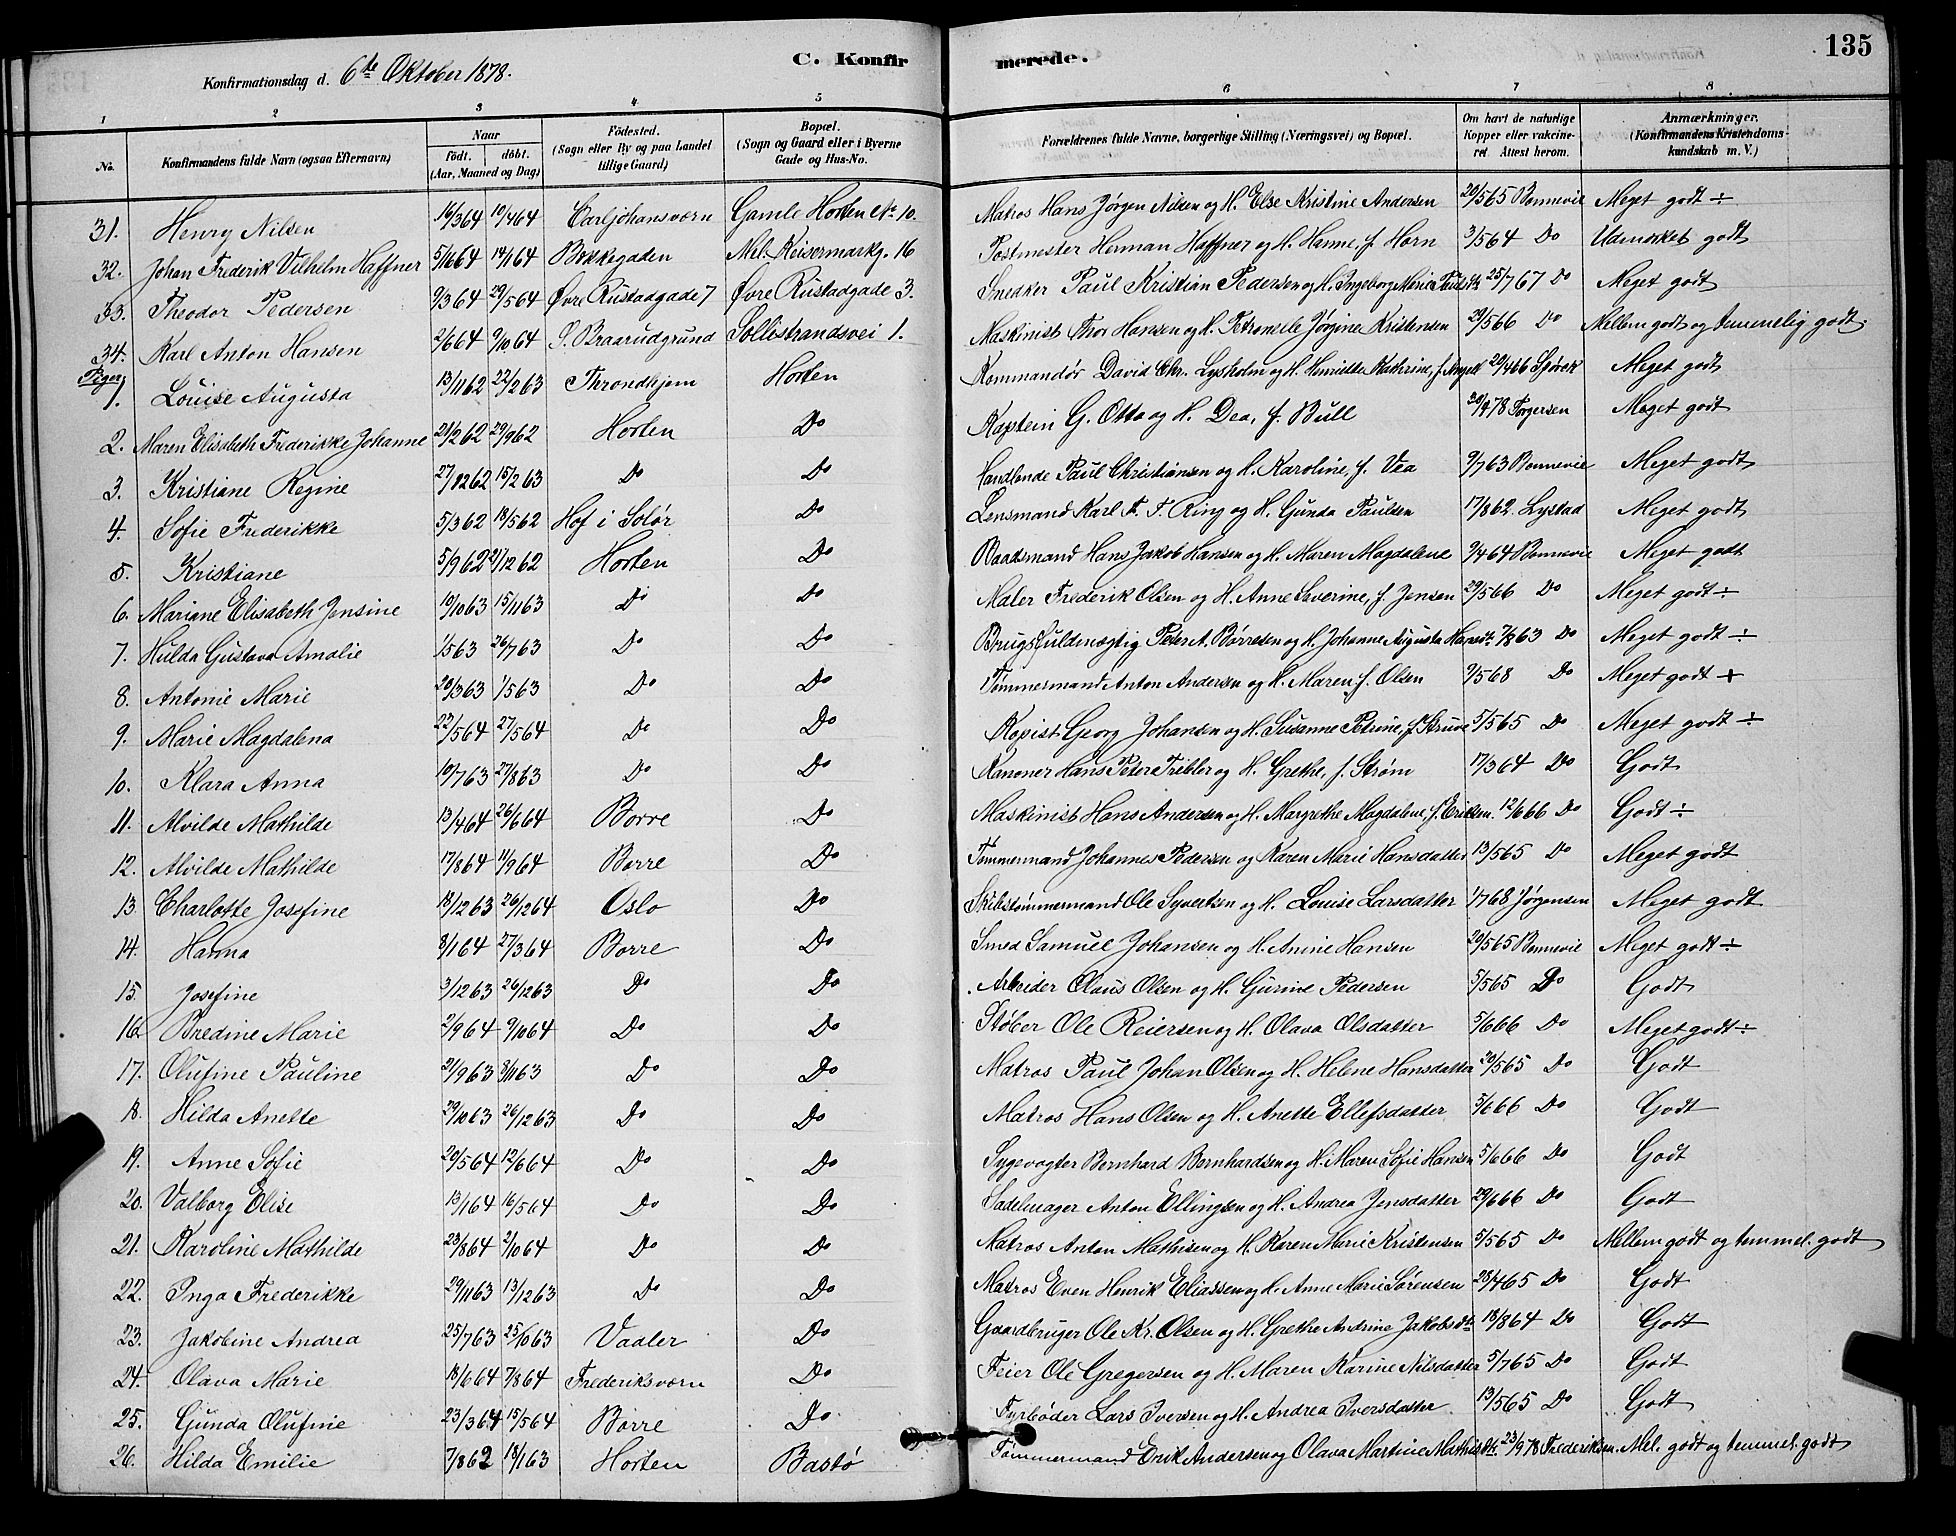 135
Konfirmationsdag d. 6te Oktober 1878.
C. Konfirmerede.
1 2 3 4 5 6 7 8
No. Konfirmandens fulde Navn (ogsaa Efternavn) Naar Födt. döbt. (Aar, Maaned og Dag) Födested. (Sogn eller By og paa Landet tillige Gaard) Bopæl. (Sogn og Gaard eller i Byerne Gade og Hus-No. Forældrenes fulde Navne, borgerlige Stilling (Næringsvei) og Bopæl. Om havt de naturlige Kopper eller vakcineret Attest herom. Anmærkninger. (Konfirmandens Kristendomskundskab m. V.)
31. Henry Nilsen 16/3 64 10/4 64 Carljohansværn Gamle Horten No 10. Matros Hans Jørgen Nilsen og H. Else Kristine Andersen 20/5 65 Bonnevie Meget godt ÷
32. Johan Frederik Vilhelm Haffner 5/1 64 19/1 64 Bekkegaden Mel. Keisermarkg. 16 Postmester Herman Haffner og H. Hanne, f. Horn 3/5 64 Do Udmærket godt
33. Theodor Pedersen 9/3 64 29/5 64 Øvre Rustadgade 7 Øvre Rustadgade 3. Snedker Paul Kristian Pedersen og H. Ingeborg Marie Paulsdt. 25/7 67 Do Meget godt
34. Karl Anton Hansen 2/6 64 9/10 64 S. Braarudgrund Sollistrandsvei 1. Maskinist Thor Hansen og H. Petronelle Jørgine Kristensen 29/5 66 Do Mellem godt og temmelig godt.
Piger
1. Louise Augusta 13/11 62 22/2 63 Throndhjem Horten Kommandør David Chr. Lysholm og H. Henriette Kathrine, f. Angell 20/4 66 Meget godt
2. Maren Elisabeth Frederikke Johanne 21/2 62 29/9 62 Horten Do Kaptein G. Otto og H. Dea, f. Bull 30/9 78 Torgersen Meget godt
3. Kristiane Regine 27/12 62 15/2 63 Do Do Handlende Paul Christiansen og H. Karoline, f. Vea 9/7 63 Bonnevie Meget godt
4. Sofie Frederikke 5/3 62 18/5 62 Hof i Solør Do Lensmand Karl F. T. Ring og H. Gunda Paulsen 17/8 62. Lystad Meget godt
5. Kristiane 5/9 62 21/12 62 Horten Do Baadsmand Hans Jakob Hansen og H. Maren Magdalene 9/4 64 Bonnevie Meget godt
6. Mariane Elisabeth Jensine 10/10 63 15/11 63 Do Do Maler Frederik Olsen og H. Anne Severine, f. Jensen 29/5 66 Do Meget godt ÷
7. Hulda Gustava Amalie 1/5 63 26/7 63 Do Do Brugsfuldmægtig Peter A. Børresen og H. Johanne Augusta 7/8 63 Do Meget godt ÷
8. Antonie Marie 20/3 63 1/5 63 Do Do Tømmermand Anton Andersen og H. Maren, f. Olsen 9/5 68 Do Meget godt +
9. Marie Magdalena 22/5 64 27/5 64 Do Do Kopist Georg Johansen og H. Susanne Petrine, f. Struve 5/5 65 Do Meget godt ÷
10. Klara Anna 10/7 63 27/8 63 Do Do Kanoner Hans Peter Tribler og H. Grethe, f. Strøm 17/3 64 Do Godt
11. Alvilde Mathilde 13/4 64 26/6 64 Borre Do Maskinist Hans Andersen og H. Margrethe Magdalene, f. Eriksen. 12/6 66 Do Godt ÷
12. Alvilde Mathilde 17/8 64 11/9 64 Borre Do Tømmermand Johannes Pedersen og Karen Marie Hansdatter 13/5 65 Do Meget godt
13. Charlotte Josefine 18/12 63 26/12 64 Oslo Do Skibstømmermand Ole Syvertsen og H. Louise Larsdatter 1/7 68 Jørgensen Meget godt
14. Hanna 8/1 64 27/3 64 Borre Do Smed Samuel Johansen og H. Anine Hansen 20/5 65 Bonnevie Meget godt ÷
15. Josefine 3/12 63 26/12 63 Do Do Arbeider Olaus Olsen og H. Gurine Pedersen 5/5 65 Do Godt
16. Bredine Marie 2/9 64 9/10 64 Do Do Støber Ole Reiersen og H. Olava Olsdatter 5/6 66 Do Meget godt ÷
17. Olufine Pauline 21/9 63 8/11 63 Do Do Matros Paul Johan Olsen og H. Helene Hansdatter 20/5 65 Do Godt
18. Hilda Anette 29/10 63 26/12 63 Do Do Matros Hans Olsen og H. Anette Ellefsdatter 5/6 66 Do Godt
19. Anne Sofie 20/5 64 12/6 64 Do Do Sygevogter Bernhard Bernhardsen og H. Maren Sofie Hansen 5/6 66 Do Godt
20. Valborg Elise 13/1 64 16/5 64 Do Do Sadelmager Anton Ellingsen og H. Andrea Jensdatter 29/6 66 Do Godt
21. Karoline Mathilde 23/8 64 2/10 64 Do Do Matros Anton Mathisen og H. Karen Marie Kristensen 5/5 65 Do Mellem godt og temmel. godt
22. Inga Frederikke 29/11 63 13/12 63 Do Do Matros Even Henrik Eliassen og H. Anne Marie Sørensen 28/4 65 Do Godt
23. Jakobine Andrea 25/7 63 25/10 63 Vaaler Do Gaardbruger Ole Kr. Olsen og H. Grethe Andrine Jakobsdt. 18/8 64 Do Godt
24. Olava Marie 18/6 64 7/8 64 Frederiksværn Do Feier Ole Gregersen og H. Maren Karine Nilsdatter 5/7 65 Do Godt
25. Gunda Olufine 23/3 64 15/5 64 Borre Do Fyrbøder Lars Iversen og H. Andrea Iversdatter 13/5 65 Do Godt
26. Hilda Emilie 7/8 62 18/1 63 Horten Bastø Tømmermand Erik Andersen og Olava Martine Mathisdt. 23/9 78 Frederiksen. Mel. godt og temmel. godt